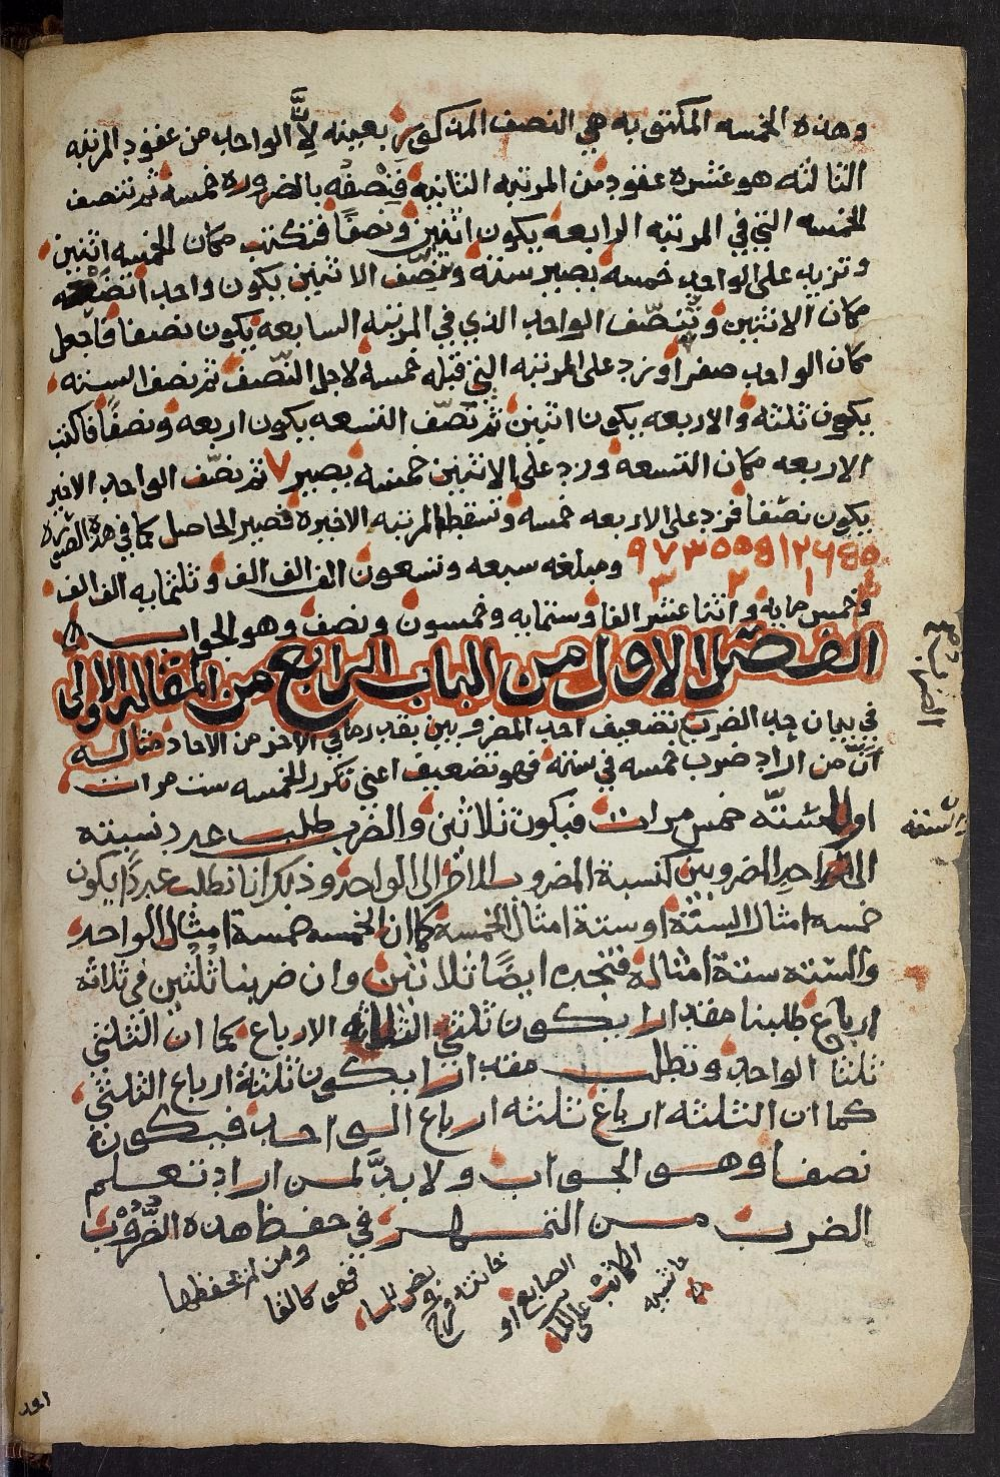 وهذه الخمسه المكتوبه هي النصف المذكور بعينه لانَّ الواحد من عقود المرتبه
الثالثه هو عشره عقود من المرتبه الثانيه فنصفه بالضروره خمسه ثم تنصف
الخمسه التي في المرتبه الرابعه يكون اثنين ونصفًا فتكتب مكان الخمسه اثنين
وتزيد على الواحد خمسه يصير سته وتنصّف الاثنين يكون واحدا تضعه
مكان الاثنين وتنصّف الواحد الذي في المرتبه السابعه يكون نصفا فاجعل
مكان الواحد صفرا وزد على المرتبه التي قبله خمسة لاجل النّصف ثم نصف السته
يكون ثلثة والاربعه يكون اثنين ثم نصّف التسعه يكون اربعه ونصفًا فاكتب
الاربعه مكان التسعه وزد على الاثنين خمسه يصير ٧ ثم نصّف الواحد الاخير
يكون نصفا فزد على الاربعه خمسه وتسقط المرتبه الاخيره فصير الحاصل كما في هذه الصوره
ومبلغه سبعه وتسعون الف الف الف وثلثمايه الف الف
وخمس مايه واثنا عشر الفا وستمايه وخمسون ونصف وهو الجواب
الفصل الاول من الباب الرابع من المقاله الاولى
في بيان حد الضرب تضعيف احد المضروبين بقدر ما في الاخر من الاحاد مثاله
انّ من اراد ضرب خمسه في سته فهو تضعيف اعني تكرر الخمسه ست مرات
او الستّه خمس مرات فيكون ثلاثين والضرب طلب عدد نسبته
الى احد المضروبين كنسبة المضروب الاخر الى الواحد وذلك انا نطلب عددًا يكون
خمسه امثال الستّة او ستة امثال الخمسة كما ان الخمسه خمسة امثال الواحد
والسته ستة امثاله فنجده ايضًا ثلاثين وان ضربنا ثلثين في ثلاثه
ارباع طلبنا مقدارا يكون ثلثي الثلاثه الارباع كما ان الثلثي
ثلثا الواحد ونطلب مقدارا يكون ثلثة ارباع الثلثي
كما ان الثلثه ارباع ثلثه ارباع الواحد فيكون
نصفا وهو الجواب ولا بدّ لمن اراد تعلم
الضرب من التمهر في حفظ هذه الضروب
ومن لم يحفظها
فهو كالفا
حاشيه
الكاتب
الصابع او
على الما